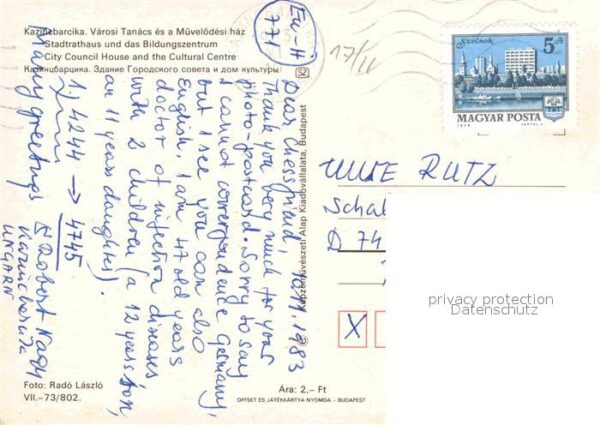 Kazincbarcika. Városi Tanács és a Művelődési ház
Stadtrathaus und das Bildungszentrum
City Council House and the Cultural Centre
Казинцбарцика. Здание Городского совета и дом культуры
SZ
Eu-H
771
17/11
10.11.1983
Dear Chessfriend,
Thank you very much for your
photo-postcard. Sorry to say
I cannot correspondence Germany,
but I see you can also
English. I am 47 old years
doctor of infection diseases
with 2 children (a 12 years son,
an 11 years daughter).
1) 4244 → 4745
Many greetings
Robert Nagy
Kazincbarcika
UNGARN
Képzőművészeti Alap Kiadóvállalata, Budapest
Szolnok
5 Ft
MAGYAR POSTA
UWE RUTZ
Schal
D 74
X
privacy protection
Datenschutz
Foto: Radó László
VII.–73/802.
Ára: 2,– Ft
OFFSET ÉS JÁTÉKKÁRTYA NYOMDA - BUDAPEST